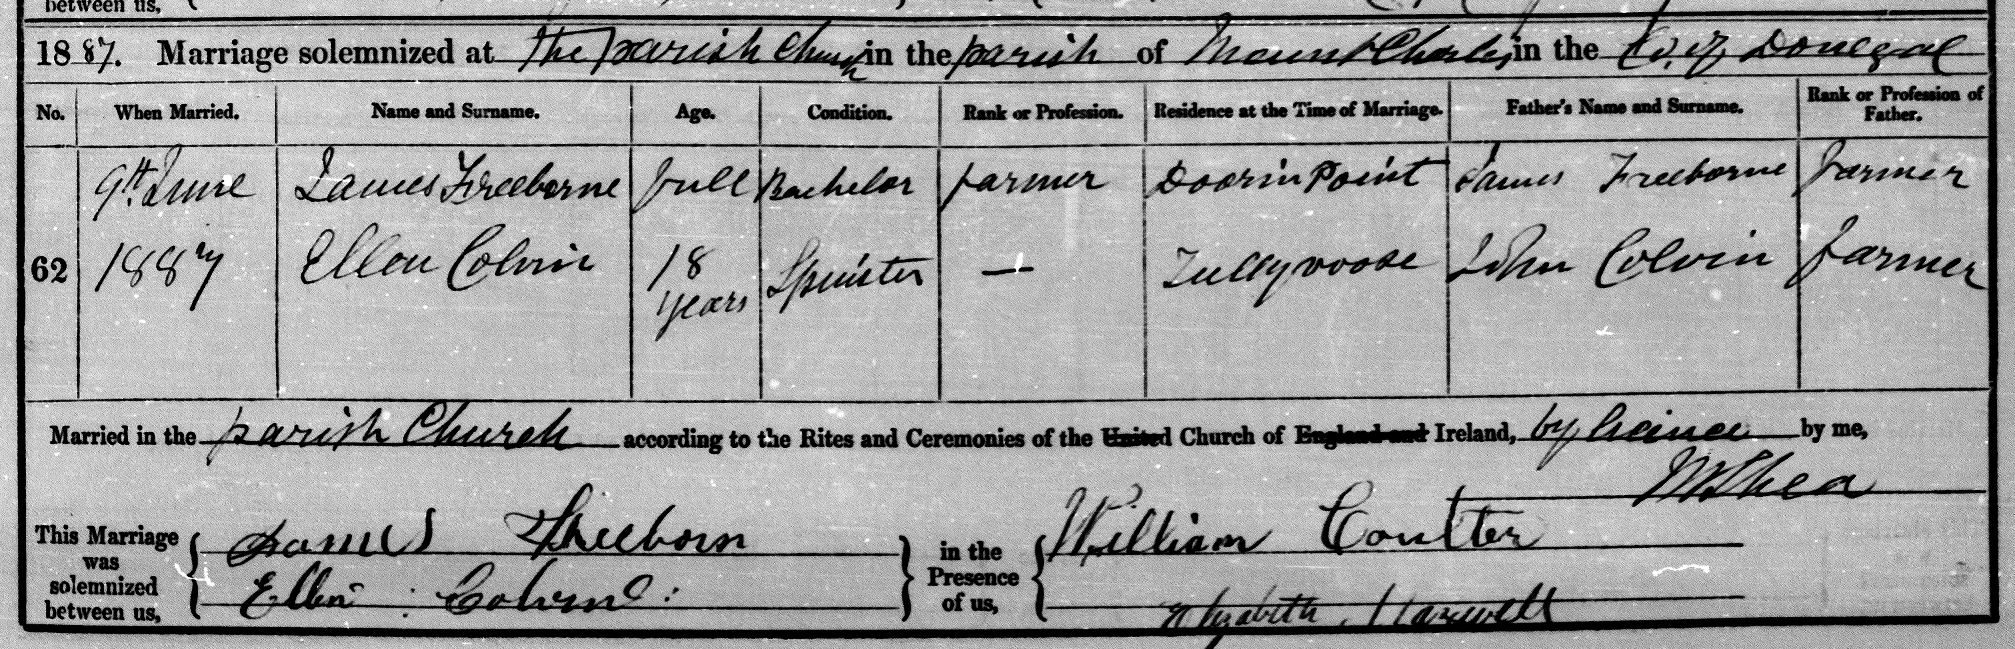 between us,
1887. Marriage solemnized at the parish Church in the parish of Mount Charles in the Co. of Donegal
No. When Married. Name and Surname. Age. Condition. Rank or Profession. Residence at the Time of Marriage. Father's Name and Surname. Rank or Profession of Father.
9th June James Freeborne full Bachelor farmer Doorin Point James Freeborne farmer
62 1887 Ellen Colvin 18 years Spinster — Tullyvoose John Colvin farmer
Married in the parish Church according to the Rites and Ceremonies of the United Church of England and Ireland, by licence by me,
This Marriage was solemnized between us, James Freeborn in the Presence of us, William Coulter
Ellen Elizabeth